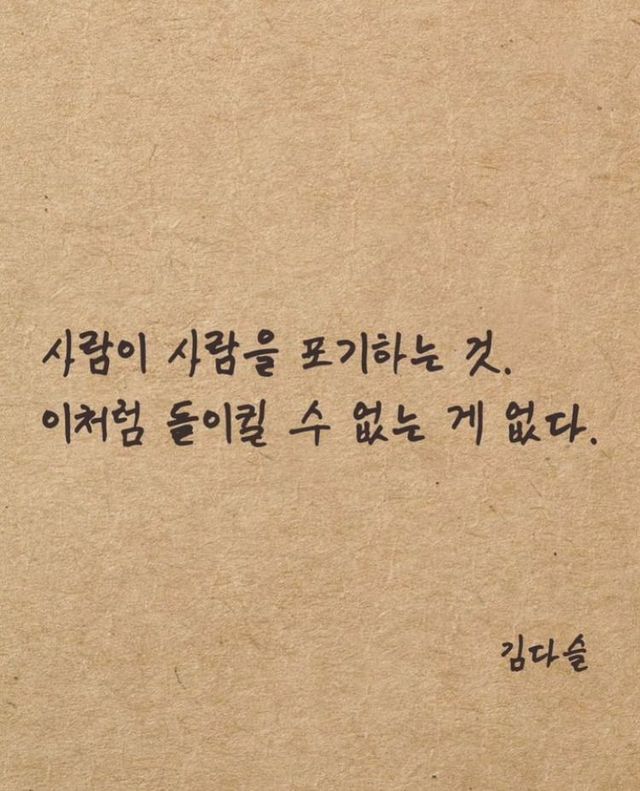 사람이 사람을 포기하는 것.
이처럼 돌이킬 수 없는 게 없다.
김다슬